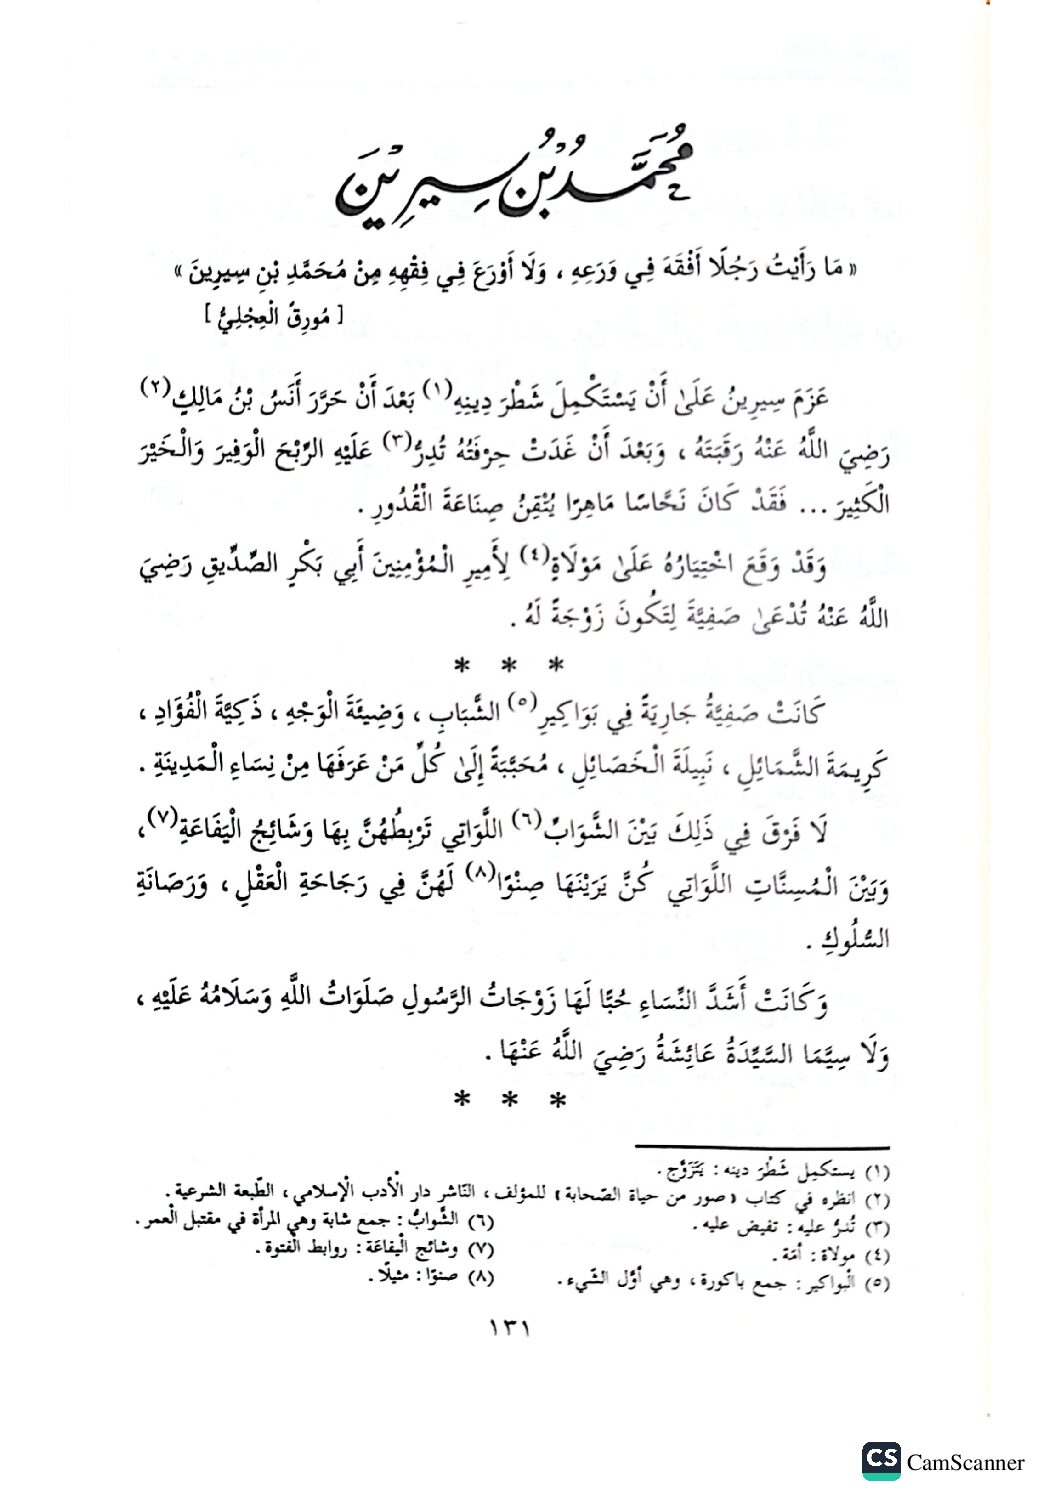 مُحَمَّدُ بْنُ سِيرِيْنَ
« مَا رَأَيْتُ رَجُلًا أَفْقَهَ فِي وَرَعِهِ ، وَلَا أَوْرَعَ فِي فِقْهِهِ مِنْ مُحَمَّدِ بْنِ سِيرِينَ »
[ مُورِقٌ الْعِجْلِيُّ ]
عَزَمَ سِيرِينُ عَلَىٰ أَنْ يَسْتَكْمِلَ شَطْرَ دِينِهِ(١) بَعْدَ أَنْ حَرَّرَ أَنَسُ بْنُ مَالِكٍ(٢)
رَضِيَ اللَّهُ عَنْهُ رَقَبَتَهُ ، وَبَعْدَ أَنْ غَدَتْ حِرْفَتُهُ تُدِرُّ(٣) عَلَيْهِ الرِّبْحَ الْوَفِيرَ وَالْخَيْرَ
الْكَثِيرَ ... فَقَدْ كَانَ نَحَّاسًا مَاهِرًا يُتْقِنُ صِنَاعَةَ الْقُدُورِ .
وَقَدْ وَقَعَ اخْتِيَارُهُ عَلَىٰ مَوْلَاةٍ(٤) لِأَمِيرِ الْمُؤْمِنِينَ أَبِي بَكْرٍ الصِّدِّيقِ رَضِيَ
اللَّهُ عَنْهُ تُدْعَىٰ صَفِيَّةَ لِتَكُونَ زَوْجَةً لَهُ .
* * *
كَانَتْ صَفِيَّةُ جَارِيَةً فِي بَوَاكِيرِ(٥) الشَّبَابِ ، وَضِيئَةَ الْوَجْهِ ، ذَكِيَّةَ الْفُؤَادِ ،
كَرِيمَةَ الشَّمَائِلِ ، نَبِيلَةَ الْخَصَائِلِ ، مُحَبَّبَةً إِلَىٰ كُلِّ مَنْ عَرَفَهَا مِنْ نِسَاءِ الْمَدِينَةِ .
لَا فَرْقَ فِي ذَلِكَ بَيْنَ الشَّوَابِّ(٦) اللَّوَاتِي تَرْبِطُهُنَّ بِهَا وَشَائِجُ الْيَفَاعَةِ(٧) ،
وَبَيْنَ الْمُسِنَّاتِ اللَّوَاتِي كُنَّ يَرَيْنَهَا صِنْوًا(٨) لَهُنَّ فِي رَجَاحَةِ الْعَقْلِ ، وَرَصَانَةِ
السُّلُوكِ .
وَكَانَتْ أَشَدَّ النِّسَاءِ حُبًّا لَهَا زَوْجَاتُ الرَّسُولِ صَلَوَاتُ اللَّهِ وَسَلَامُهُ عَلَيْهِ ،
وَلَا سِيَّمَا السَّيِّدَةُ عَائِشَةُ رَضِيَ اللَّهُ عَنْهَا .
* * *
(١) يستكمل شَطْرَ دينه : يَتَزَوَّج .
(٢) انظره في كتاب « صور من حياة الصّحابة » للمؤلف ، النّاشر دار الأدب الإسلامي ، الطّبعة الشرعية .
(٣) تُدرُّ عليه : تفيض عليه .
(٤) مولاة : أمَة .
(٥) الْبواكير : جمع باكورة ، وهي أوَّل الشّيء .
(٦) الشَّوابُّ : جمع شابة وهي المرأة في مقتبل الْعمر .
(٧) وشائج الْيفاعَة : روابط الْفتوة .
(٨) صنوًا : مثيلًا .
١٣١
CS CamScanner